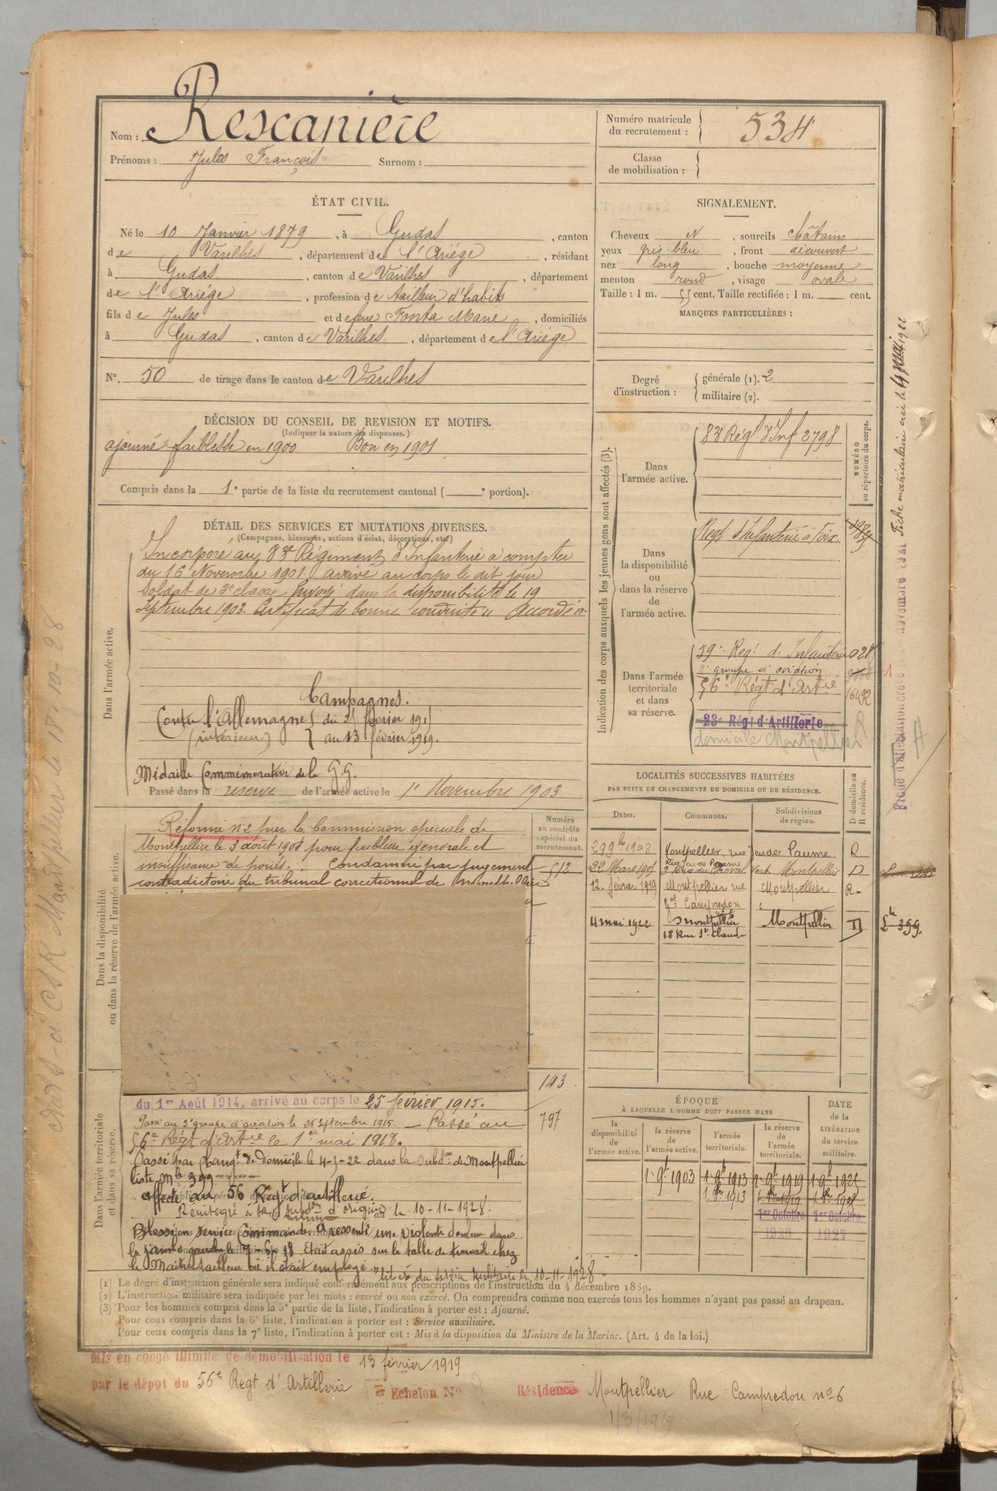 Nom : Rescanière
Prénoms : Jules François Surnom :
Numéro matricule du recrutement : 534
Classe de mobilisation :
ÉTAT CIVIL.
Né le 10 Janvier 1879, à Gudas, canton
de Varilhes, département de l'Ariège, résidant
à Gudas, canton de Varilhes, département
de l'Ariège, profession de tailleur d'habits
fils de Jules et de feue Fonta Marie, domiciliés
à Gudas, canton de Varilhes, département de l'Ariège
N° 50 de tirage dans le canton de Varilhes
SIGNALEMENT.
Cheveux N, sourcils châtains
yeux gris-bleu, front découvert
nez long, bouche moyenne
menton rond, visage ovale
Taille : 1 m. 55 cent. Taille rectifiée : 1 m. cent.
MARQUES PARTICULIÈRES :
Degré d'instruction : générale (1). 2
militaire (2).
DÉCISION DU CONSEIL DE REVISION ET MOTIFS.
(Indiquer la nature des dispenses.)
ajourné faiblesse en 1900 Bon en 1901
Compris dans la 1e partie de la liste du recrutement cantonal ( e portion).
DÉTAIL DES SERVICES ET MUTATIONS DIVERSES.
(Campagnes, blessures, actions d'éclat, décorations, etc.)
Dans l'armée active.
Incorporé au 83e Régiment d'Infanterie à compter
du 16 Novembre 1901 arrivé au corps le dit jour
soldat de 2e classe Envoyé dans la disponibilité le 19
Septembre 1903. Certificat de bonne conduite "Accordé"
Campagnes.
Contre l'Allemagne du 25 février 191
(intérieur) au 13 février 1919.
Médaille Commémorative de la G.G.
Passé dans la réserve de l'armée active le 1er Novembre 1903
Indication des corps auxquels les jeunes gens sont affectés (3).
Dans l'armée active.
83 Régt d'Inf 2798
NUMÉRO au répertoire du corps.
Dans la disponibilité ou dans la réserve de l'armée active.
Régt d'Infanterie Foix
Dans l'armée territoriale et dans sa réserve.
59e Régt d'Infanterie
2e groupe d'aviation
56e Régt d'Artie
23e Régt d'Artillerie
domicile Montpellier
Dans la disponibilité ou dans la réserve de l'armée active.
Réformé n°2 par la Commission spéciale de
Montpellier le 3 août 1908 pour faiblesse générale et
insuffisance de poids. Condamné par jugement
contradictoire du tribunal correctionnel de
Numéro au contrôle spécial du recrutement.
512
143
797
LOCALITÉS SUCCESSIVES HABITÉES
PAR SUITE DE CHANGEMENTS DE DOMICILE OU DE RÉSIDENCE.
Dates. Communes. Subdivisions de région. D domicile ou R résidence.
29 9bre 1903 Montpellier, rue Jeu de Paume R
22 Mars 1905 Montpellier D
12 févrie 1919 Montpellier rue Campredon Montpellier R
4 mai 1922 Montpellier 18 Rue St Claude Montpellier D
Dans l'armée territoriale et dans sa réserve.
du 1er Août 1914, arrivé au corps le 25 février 1915.
Passé au 2e groupe d'aviation le 26 septembre 1915. — Passé au
56e Régt d'Artie le 1er mai 1918.
Passé par changt de domicile le 4-5-22 dans la Subdon de Montpellier
liste Mle 399
affecté au 56 Régt d'artillerie.
Réintégré à sa Subdon d'origine le 10-11-1928.
Blessé en service Commandé. A ressenti une violente douleur dans
la jambe gauche le 7-5-18. Était assis sur la table de travail chez
le Maître tailleur où il était employé. Libéré du service militaire le 10-11-1928
ÉPOQUE
À LAQUELLE L'HOMME DOIT PASSER DANS
la disponibilité de l'armée active. la réserve de l'armée active. l'armée territoriale. la réserve de l'armée territoriale. DATE de la LIBÉRATION du service militaire.
1er 9bre 1903 1er 9bre 1913 1er 9bre 1919
1er Octobre 1er Octobre
1920 1927
(1) Le degré d'instruction générale sera indiqué conformément aux prescriptions de l'instruction du 4 décembre 1889.
(2) L'instruction militaire sera indiquée par les mots : exercé ou non exercé. On comprendra comme non exercés tous les hommes n'ayant pas passé au drapeau.
(3) Pour les hommes compris dans la 5e partie de la liste, l'indication à porter est : Ajourné.
Pour ceux compris dans la 6e liste, l'indication à porter est : Service auxiliaire.
Pour ceux compris dans la 7e liste, l'indication à porter est : Mis à la disposition du Ministre de la Marine. (Art. 4 de la loi.)
Mis en congé illimité de démobilisation le 13 février 1919
par le dépôt du 56e Régt d'Artillerie Echelon N° Résidence Montpellier Rue Campredon n°6